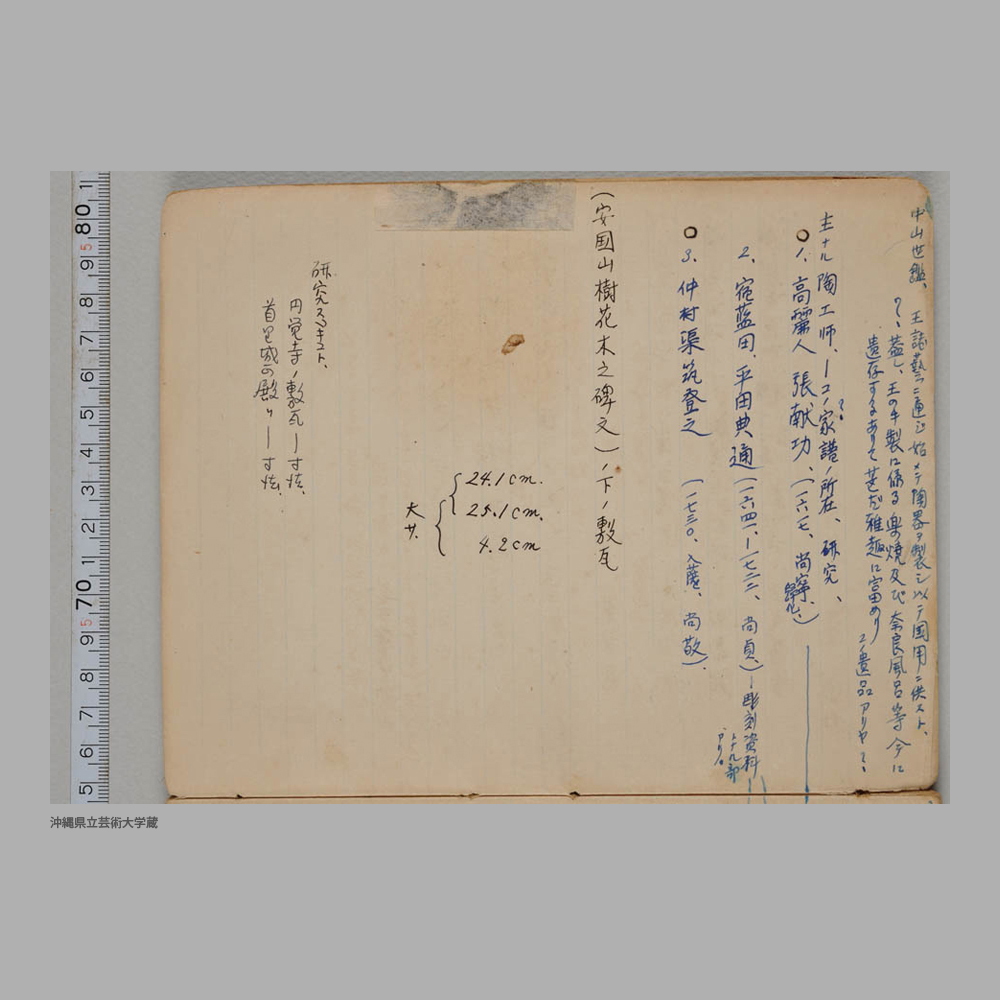 中山世鑑、
王諸藝ニ通じ始メテ陶器ヲ製シ以テ国用ニ供スト、
？、蓋し、王の手製に係る楽焼及び奈良風呂等今に
遺存するありて甚だ雅趣に富めり
コノ遺品アリヤ？、
主ナル陶工师、ーコノ家譜ノ所在、研究、
？
○
1、高麗人 張献功、（一六一七、尚寧、歸化、）
2、宿藍田、平田典通（一六四一、ー一七二二、尚貞、）ー彫刻資料
トナル部アリ。
○
3、仲村渠筑登之（一七三〇、入薩、尚敬）、
（安国山樹花木之碑文）ノ下ノ敷瓦
24.1cm.
25.1cm.
4.2cm
大サ.
研究スルキコト、
円覚寺ノ敷瓦ー寸法、
首里城の殿〃ー寸法、
80 1
5 9 8 7 6 5 4 3 2 1
70
5 9 8 7 6 5
沖縄県立芸術大学蔵